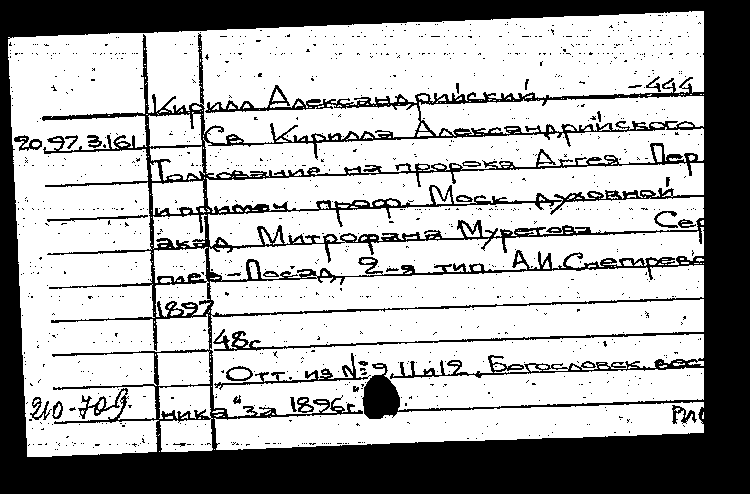 Кирилл Александрийский, -444
20.97.3.161 Св. Кирилла Александрийского
Толкование на пророка Аггея Пер
и примеч. проф. Моск. духовной
акад. Митрофана Муретова Сер
гиев-Посад, 2-я тип. А.И.Снегирево
1897.
48с
„Отт. из №9,11и12 „Богословск. вест
210-709. ника" за 1896г."